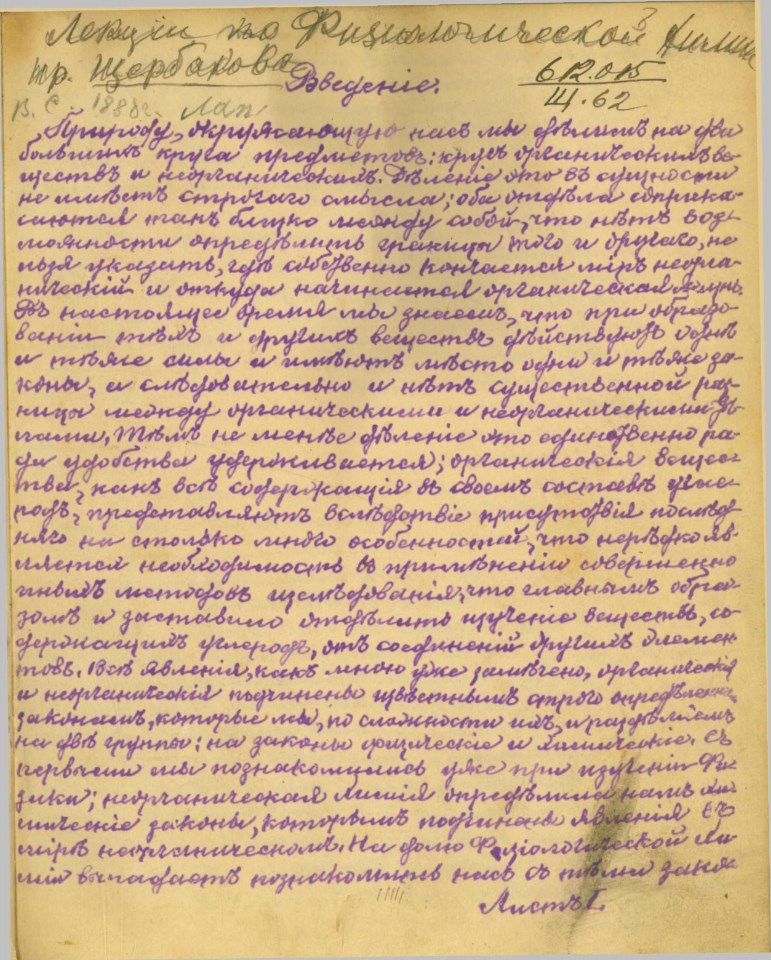 Лекціи по Физіологической Химіи
пр. Щербакова
612.015
Щ. 62
В. С. 1888г.
Введеніе.
Природу, окружающую насъ мы дѣлимъ на два
большихъ круга предметовъ: кругъ органическихъ ве-
ществъ и неорганическихъ. Дѣленіе это въ сущности
не имѣетъ строгаго смысла; оба отдѣла соприка-
саются такъ близко между собой, что нѣтъ воз-
можности опредѣлить границы того и другаго, не-
льзя указать, гдѣ собственно кончается міръ неорга-
ническій и откуда начинается органическая жизнь.
Въ настоящее время мы знаемъ, что при образо-
ваніи тѣхъ и другихъ веществъ дѣйствуютъ однѣ
и тѣже силы и имѣютъ мѣсто одни и тѣже за-
коны, а слѣдовательно и нѣтъ существенной раз-
ницы между органическими и неорганическими тѣ-
лами. Тѣмъ не менѣе дѣленіе это единственно ра-
ди удобства удерживается; органическія вещес-
тва, какъ всѣ содержащія въ своемъ составѣ угле-
родъ, представляютъ вслѣдствіе присутствія послѣд-
няго на столько много особенностей, что нерѣдко яв-
ляется необходимость въ примѣненіи совершенно
иныхъ методовъ изслѣдованія, что главнымъ обра-
зомъ и заставило отдѣлить изученіе веществъ, со-
держащихъ углеродъ, отъ соединеній другихъ элемен-
товъ. Всѣ явленія, какъ мною уже замѣчено, органическія
и неорганическія подчинены извѣстнымъ строго опредѣленн.
законамъ, которые мы, по сложности ихъ, и раздѣляемъ
на двѣ группы: на законы физическіе и химическіе. Съ
первыми мы познакомились уже при изученіи Фи-
зики; неорганическая Химія опредѣлила намъ хи-
мическіе законы, которымъ подчинены явленія въ
мірѣ неорганическомъ. На долю Физіологической Хи-
міи выпадаетъ познакомить насъ съ тѣми зако-
Листъ 1.